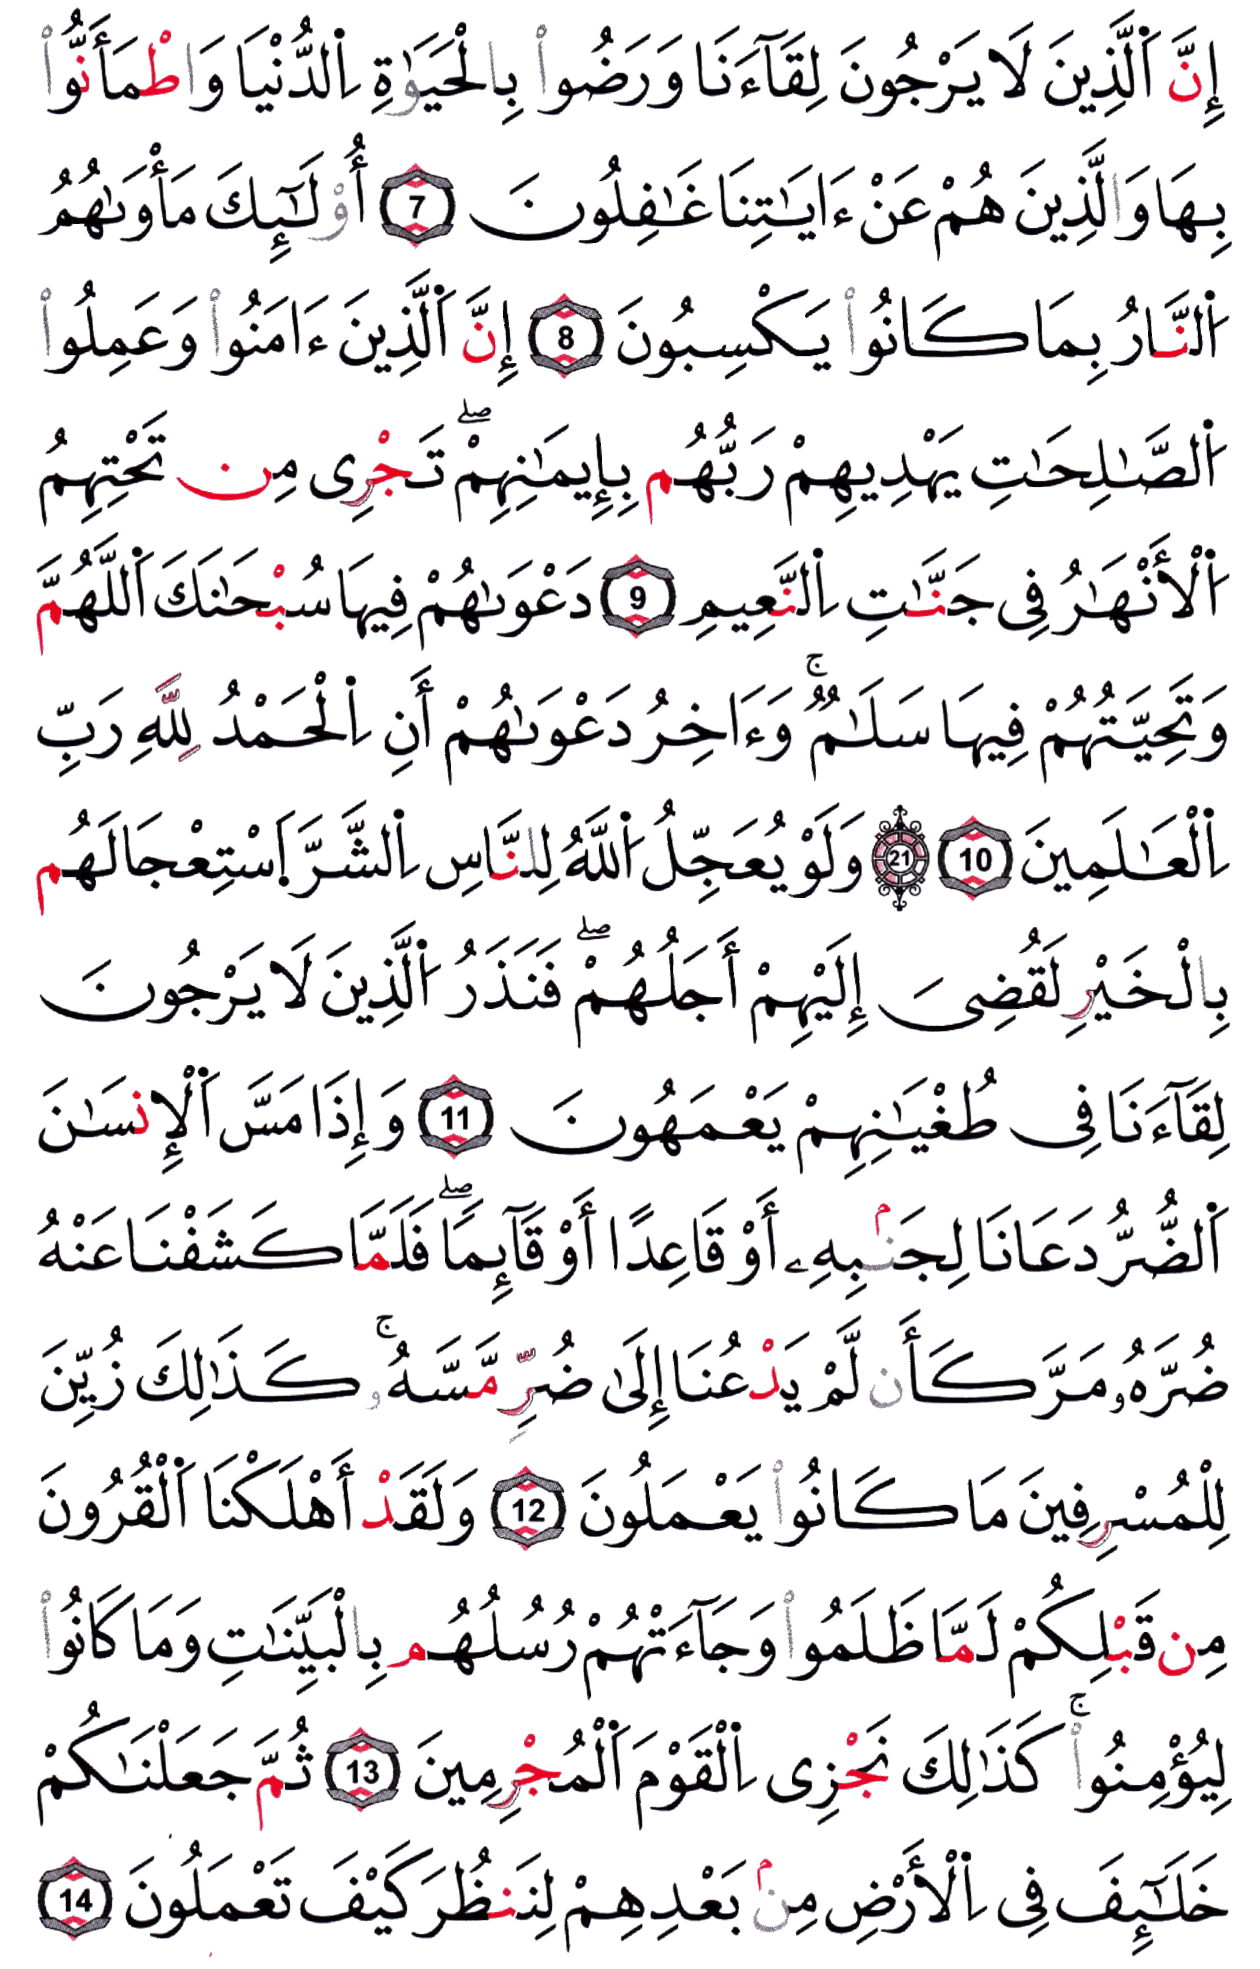 إِنَّ ٱلَّذِينَ لَا يَرْجُونَ لِقَآءَنَا وَرَضُوا۟ بِالْحَيَوٰةِ اِ۬لدُّنْيَا وَاطْمَأَنُّوا۟
بِهَا وَالَّذِينَ هُمْ عَنْ ءَايَٰتِنَا غَٰفِلُونَ 7 أُوْلَٰٓئِكَ مَأْوَىٰهُمُ
اَ۬لنَّارُ بِمَا كَانُوا۟ يَكْسِبُونَ 8 إِنَّ اَ۬لَّذِينَ ءَامَنُوا۟ وَعَمِلُوا۟
اَ۬لصَّٰلِحَٰتِ يَهْدِيهِمْ رَبُّهُم بِإِيمَٰنِهِمْۖ تَجْرِى مِن تَحْتِهِمُ
اَ۬لْأَنْهَٰرُ فِى جَنَّٰتِ اِ۬لنَّعِيمِ 9 دَعْوَىٰهُمْ فِيهَا سُبْحَٰنَكَ اَ۬للَّهُمَّ
وَتَحِيَّتُهُمْ فِيهَا سَلَٰمٌۚ وَءَاخِرُ دَعْوَىٰهُمْ أَنِ اِ۬لْحَمْدُ لِلَّهِ رَبِّ
اِ۬لْعَٰلَمِينَ 10 21 وَلَوْ يُعَجِّلُ اُ۬للَّهُ لِلنَّاسِ اِ۬لشَّرَّ اَ۪سْتِعْجَالَهُم
بِالْخَيْرِ لَقُضِىَ إِلَيْهِمْ أَجَلُهُمْۖ فَنَذَرُ اُ۬لَّذِينَ لَا يَرْجُونَ
لِقَآءَنَا فِى طُغْيَٰنِهِمْ يَعْمَهُونَ 11 وَإِذَا مَسَّ اَ۬لْإِنسَٰنَ
اَ۬لضُّرُّ دَعَانَا لِجَنۢبِهِۦ أَوْ قَاعِدًا أَوْ قَآئِمًاۖ فَلَمَّا كَشَفْنَا عَنْهُ
ضُرَّهُۥ مَرَّ كَأَن لَّمْ يَدْعُنَا إِلَىٰ ضُرٍّ مَّسَّهُۥۚ كَذَٰلِكَ زُيِّنَ
لِلْمُسْرِفِينَ مَا كَانُوا۟ يَعْمَلُونَ 12 وَلَقَدْ أَهْلَكْنَا اَ۬لْقُرُونَ
مِن قَبْلِكُمْ لَمَّا ظَلَمُوا۟ وَجَآءَتْهُمْ رُسُلُهُم بِالْبَيِّنَٰتِ وَمَا كَانُوا۟
لِيُؤْمِنُوا۟ۚ كَذَٰلِكَ نَجْزِى اِ۬لْقَوْمَ اَ۬لْمُجْرِمِينَ 13 ثُمَّ جَعَلْنَٰكُمْ
خَلَٰٓئِفَ فِى اِ۬لْأَرْضِ مِنۢ بَعْدِهِمْ لِنَنظُرَ كَيْفَ تَعْمَلُونَ 14